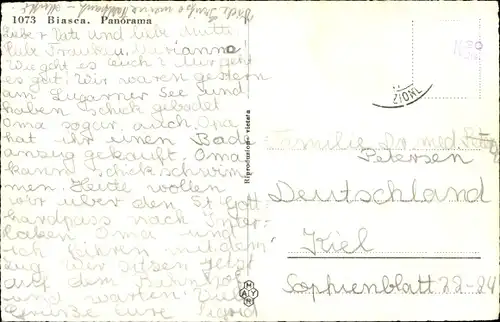 1073 Biasca. Panorama
lieber Vati und liebe Mutti
liebe Traute u. Marianne
Wie geht es euch? Mir geht
es gut. Wir waren gestern
am Luganer See und
haben schick gebadet
Oma sogar auch. Opa
hat ihr einen Bade
anzug gekauft. Oma
kann dick schwim
men. Heute wollen
wir über den St. Gott
hardpass nach Inter
laken. Oma und
ich fahren mit dem
Zug. Wir sitzen jetzt
auf dem Bahnhof
und warten. Viele
Grüße eure Sigrid
Riproduzione vietata
Familie Dr. med.
Petersen
Deutschland
Kiel
Sophienblatt 22-24